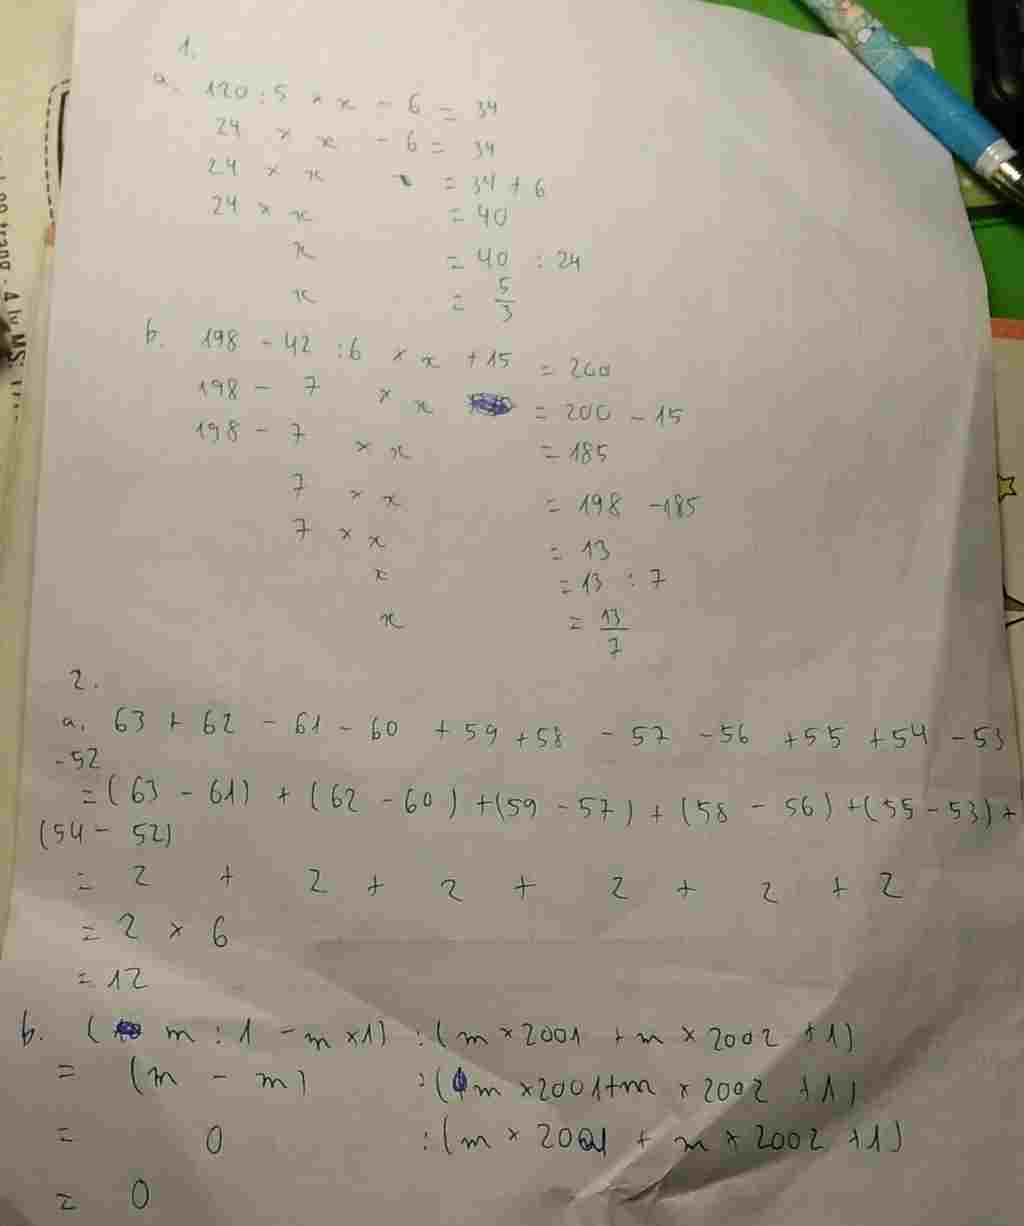 1.
a. 120 : 5 × x - 6 = 34
24 × x - 6 = 34
24 × x = 34 + 6
24 × x = 40
x = 40 : 24
x = 5/3
b. 198 - 42 : 6 × x + 15 = 200
198 - 7 × x = 200 - 15
198 - 7 × x = 185
7 × x = 198 - 185
7 × x = 13
x = 13 : 7
x = 13/7
2.
a. 63 + 62 - 61 - 60 + 59 + 58 - 57 - 56 + 55 + 54 - 53
- 52
= (63 - 61) + (62 - 60) + (59 - 57) + (58 - 56) + (55 - 53) +
(54 - 52)
= 2 + 2 + 2 + 2 + 2 + 2
= 2 × 6
= 12
b. (m : 1 - m × 1) : (m × 2001 + m × 2002 + 1)
= (m - m) : (m × 2001 + m × 2002 + 1)
= 0 : (m × 2001 + m × 2002 + 1)
= 0